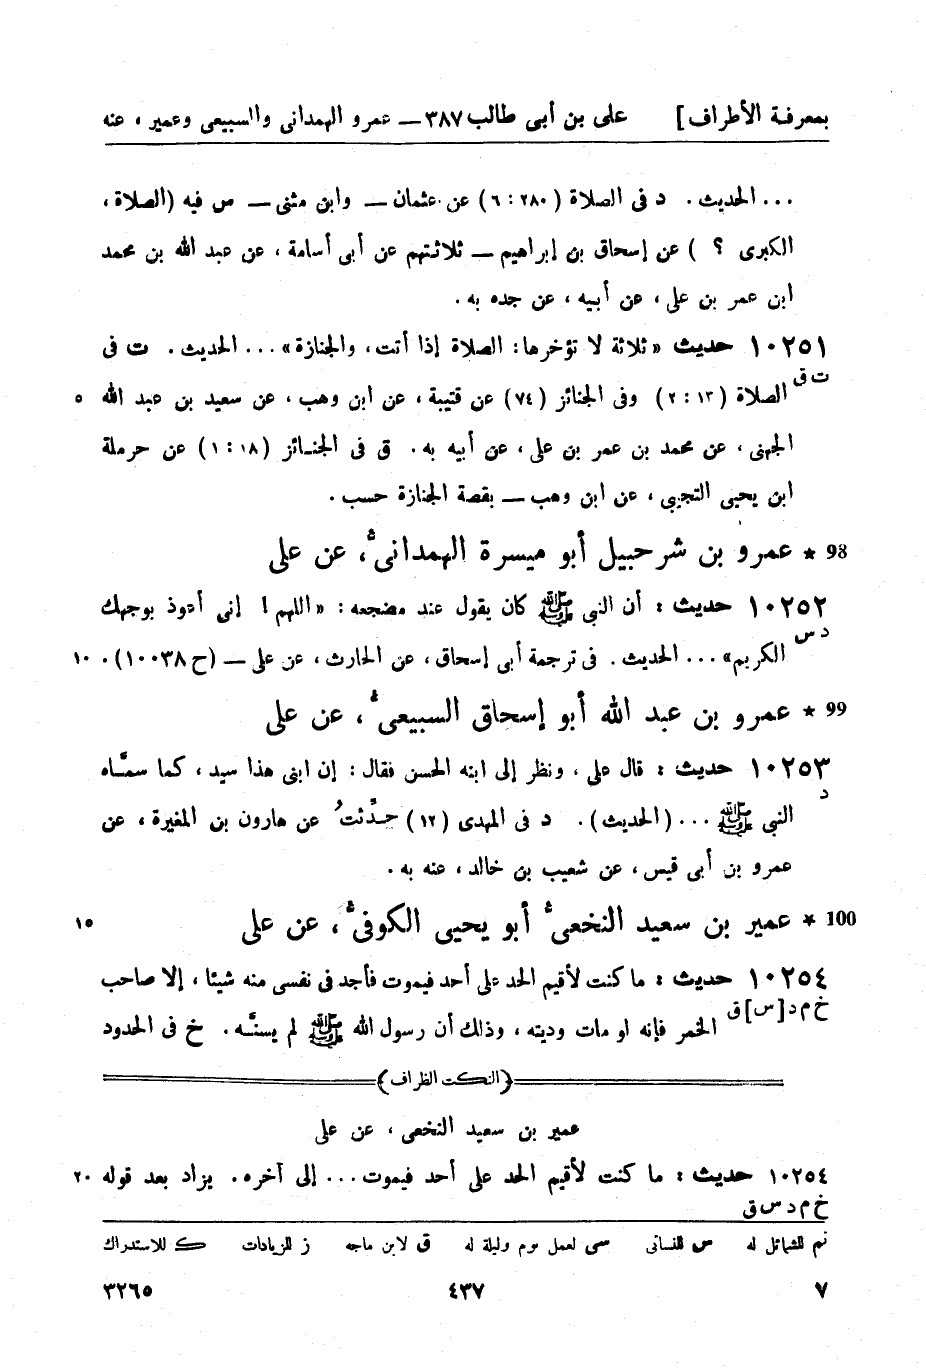 بمعرفة الأطراف] على بن أبى طالب ٣٨٧ — عمرو الهمدانى والسبيعى وعمير ، عنه
... الحديث . د فى الصلاة (٢٨٠ : ٦) عن عثمان — وابن مثنى — س فيه (الصلاة ،
الكبرى ؟ ) عن إسحاق بن إبراهيم — ثلاثتهم عن أبى أسامة ، عن عبد الله بن محمد
ابن عمر بن على ، عن أبيه ، عن جده به .
١٠٢٥١ حديث « ثلاثة لا تؤخرها : الصلاة إذا أتت ، والجنازة » ... الحديث . ت فى
ت ق الصلاة (١٣ : ٢) وفى الجنائز (٧٤) عن قتيبة ، عن ابن وهب ، عن سعيد بن عبد الله ٥
الجهنى ، عن محمد بن عمر بن على ، عن أبيه به . ق فى الجنائز (١٨ : ١) عن حرملة
ابن يحيى التجيبى ، عن ابن وهب — بقصة الجنازة حسب .
98 * عمرو بن شرحبيل أبو ميسرة الهمدانى ، عن على
١٠٢٥٢ حديث : أن النبى ﷺ كان يقول عند مضجعه : « اللهم ! إنى أعوذ بوجهك
د س الكريم » ... الحديث . فى ترجمة أبى إسحاق ، عن الحارث ، عن على — (ح ١٠٠٣٨) . ١٠
99 * عمرو بن عبد الله أبو إسحاق السبيعى ، عن على
١٠٢٥٣ حديث : قال على ، ونظر إلى ابنه الحسن فقال : إن ابنى هذا سيد ، كما سمَّاه
د النبى ﷺ ... (الحديث) . د فى المهدى (١٢) حدِّثتُ عن هارون بن المغيرة ، عن
عمرو بن أبى قيس ، عن شعيب بن خالد ، عنه به .
100 * عمير بن سعيد النخعى أبو يحيى الكوفى ، عن على ١٥
١٠٢٥٤ حديث : ما كنت لأقيم الحد على أحد فيموت فأجد فى نفسى منه شيئا ، إلا صاحب
خ م د [س] ق الخمر فإنه لو مات وديته ، وذلك أن رسول الله ﷺ لم يسنَّه . خ فى الحدود
(النكت الظراف)
عمير بن سعيد النخعى ، عن على
١٠٢٥٤ حديث : ما كنت لأقيم الحد على أحد فيموت ... إلى آخره . يزاد بعد قوله ٢٠
خ م د س ق
تم للشمائل له س للنسائى سى لعمل يوم وليلة له ق لابن ماجه ز للزيادات ك للاستدراك
٧ ٤٣٧ ٣٢٦٥